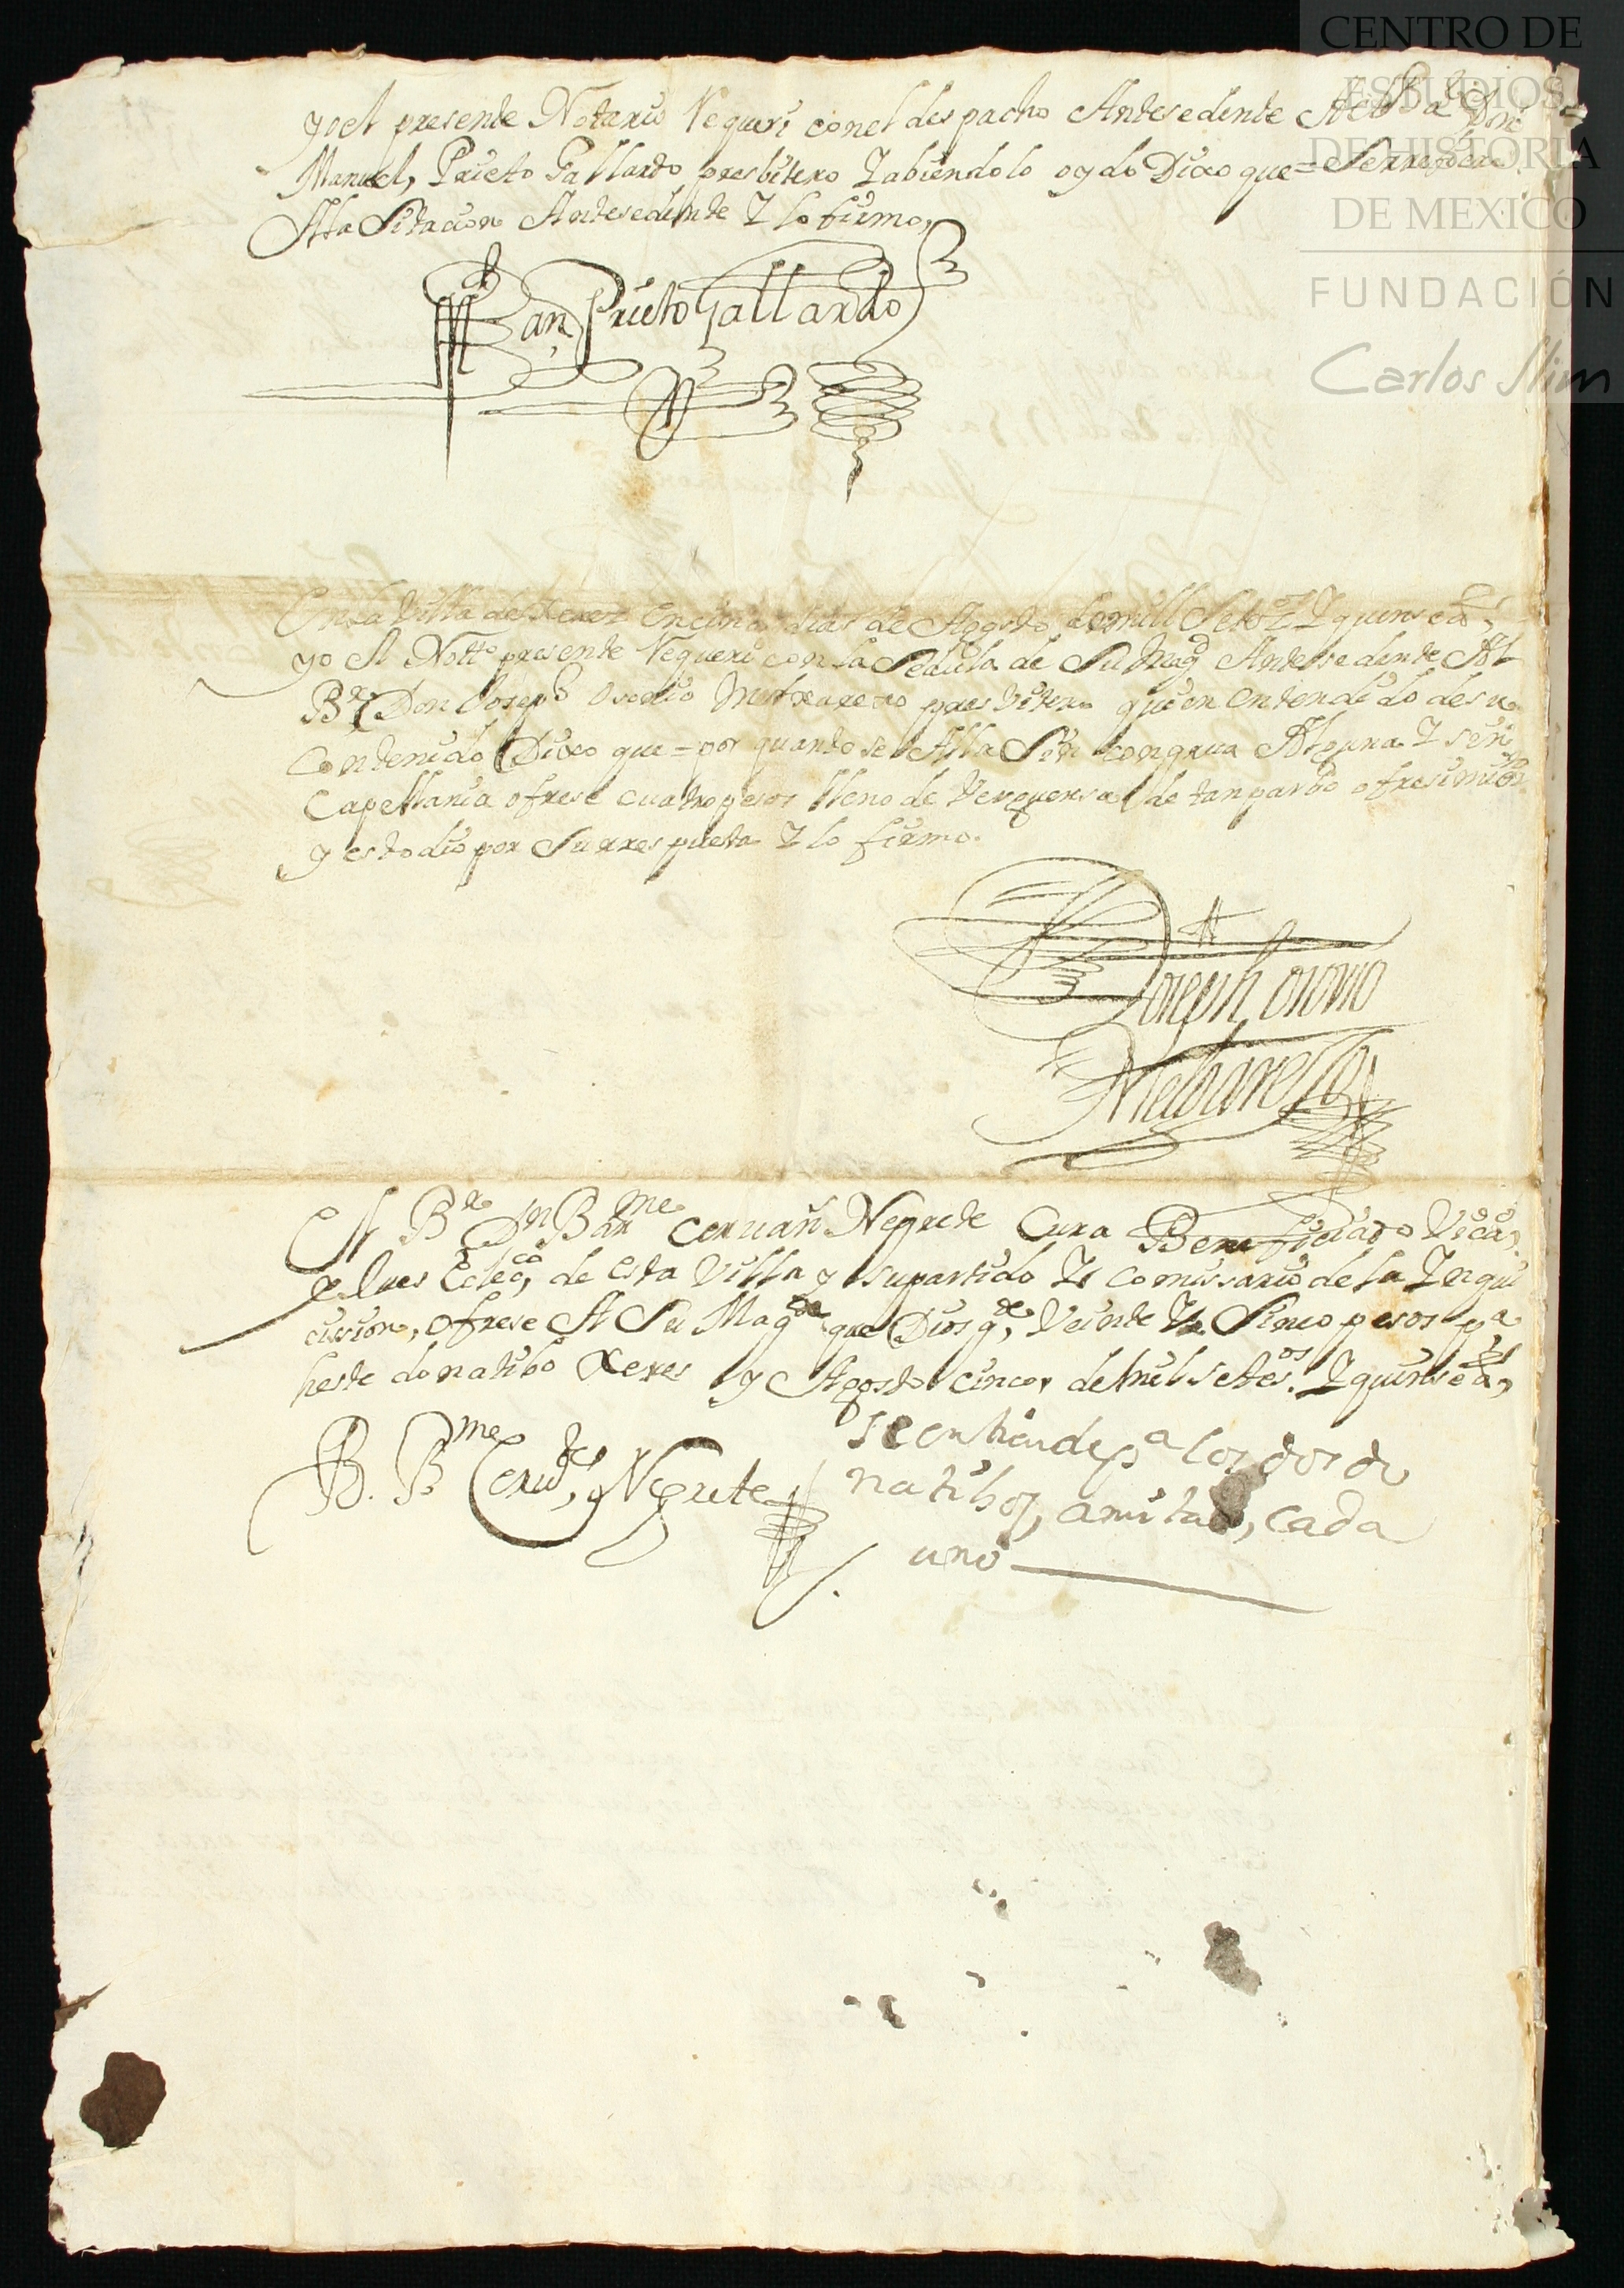 CENTRO DE
ESTUDIOS
DE HISTORIA
DE MEXICO
FUNDACIÓN
Carlos Slim
yo el presente Notario Requeri con el despacho Antesedente Al Br Don
Manuel, Prieto Gallardo presbitero Y abiendolo oydo Dixo que =
A la Sitacion Antesedente Y lo firmo,
Man Prieto Gallardo
En la Villa de Xerez en cinco dias de Agosto de mill Setos Y quinse as,
yo el Notto presente Requeri con la Sedula de Su Magd Antesedente Al
Br Don Joseph Osorio presvitero quien entendido de su
Contenido Dixo que = por quanto se Alla Sin congrua Alguna Y sin
Capellania ofrese cuatro pesos lleno de Verguensa de tan parbo ofresimto
y esto dio por Su rrespuesta Y lo firmo.
Joseph Osorio
El Br Dn Barme Cervañ Negrete Cura Beneficiado Vicaº,
Jues Ecleco, de esta Villa y su partido Y Comissario de la Inqui
cision, ofrese A Su Magde que Dios gde, Veinte Y Sinco pesos pa
heste donatibo Xeres y Agosto cinco, de mil setesos. Y quinse as,
B. Bme Cervtes, Negrete
se entiende pa los dos do
natibos, a mitad, cada
uno